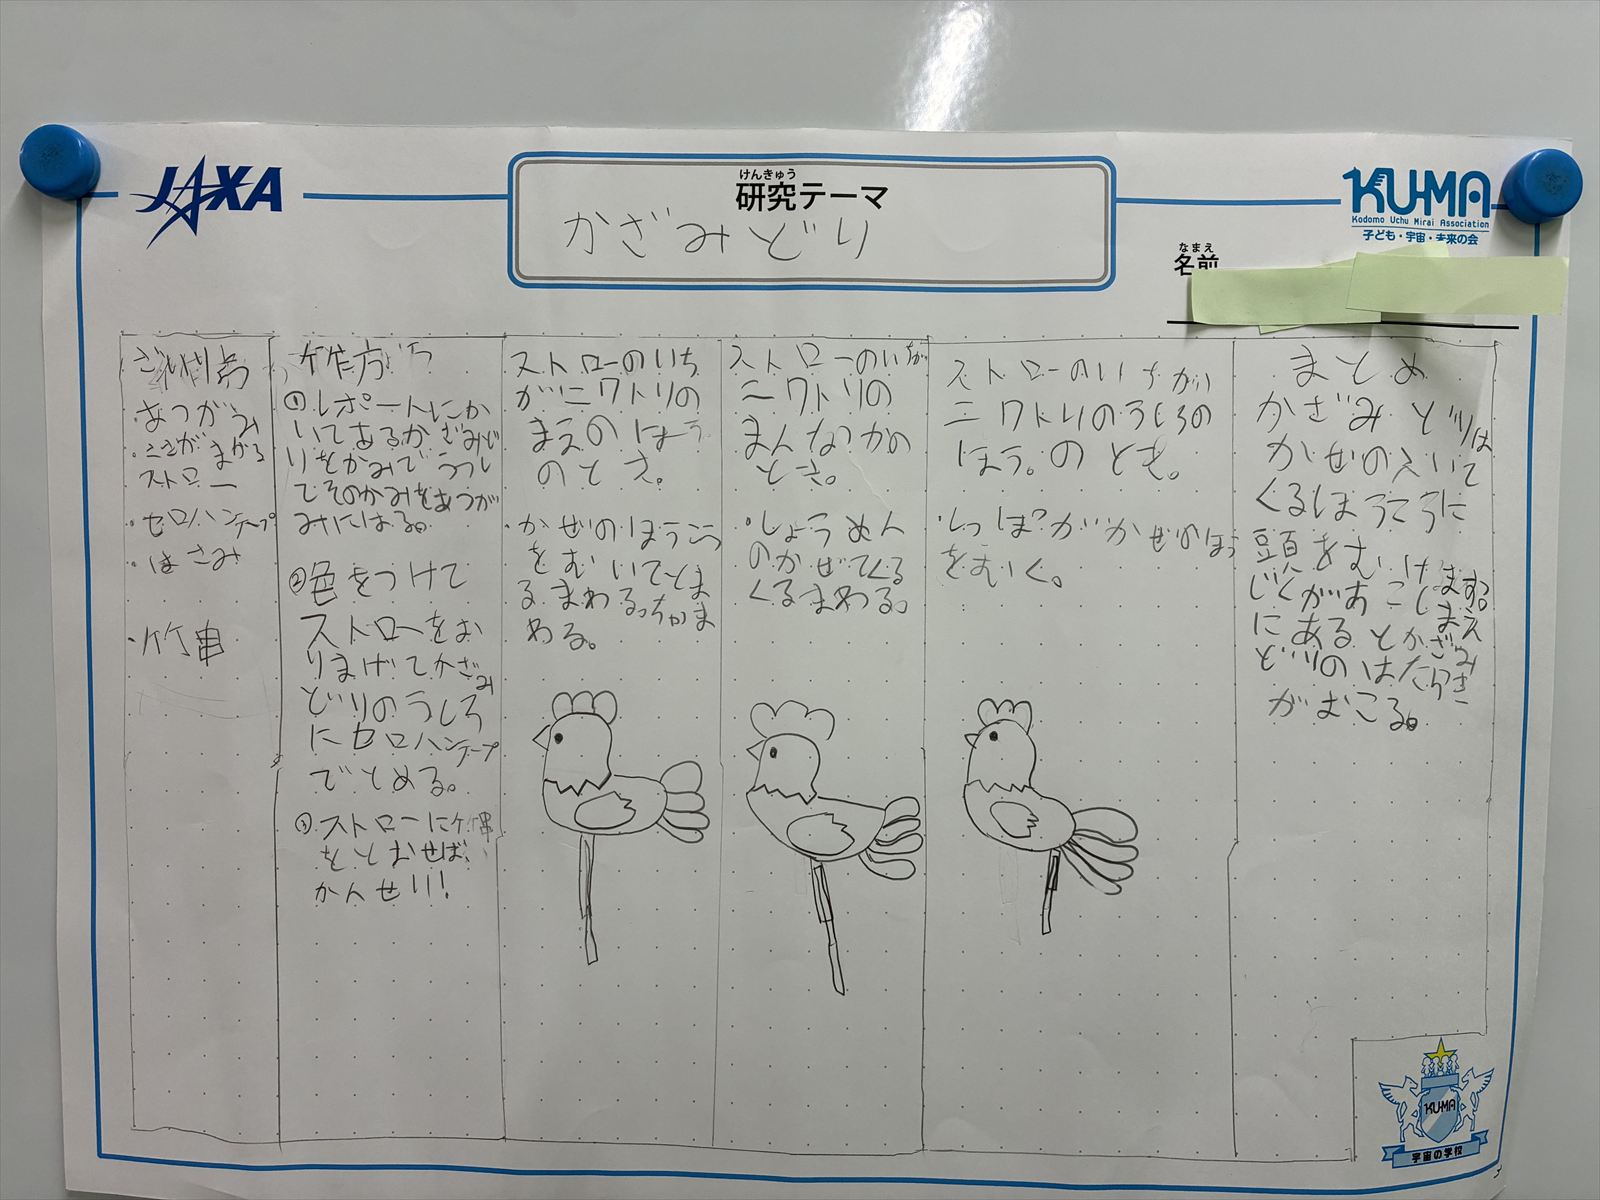 JAXA
けんきゅう
研究テーマ
かざみどり
KU-MA
Kodomo Uchu Mirai Association
子ども・宇宙・未来の会
なまえ
名前
あつがみ
まがる
ストロー
・セロハンテープ
・はさみ
・竹串
作方
①レポートにか
いてあるかざみど
りをかみでうつし
てそのかみをあつが
みにはる。
②色をつけて
ストローをお
りまげてかざみ
どりのうしろ
にセロハンテープ
でとめる。
③ストローに竹串
をとおせば、
かんせい!
ストローのいち
がニワトリの
まえのほう
のとき。
・かぜのほうこう
をむいてとま
る。まわるっちゃま
わる。
ストローのいちが
ニワトリの
まんなかの
とき。
・しょうめん
のかぜでくる
くるまわる。
ストローのいちがい
ニワトリのうしろの
ほう。のとき。
・しっぽ?がかぜのほう
をむく。
まとめ
かざみどりは
かぜのふいて
くるほうこうに
頭をむけます。
じくがあこしまえ
にあるとかざみ
どりのはたらき
がおこる。
KU-MA
宇宙の学校